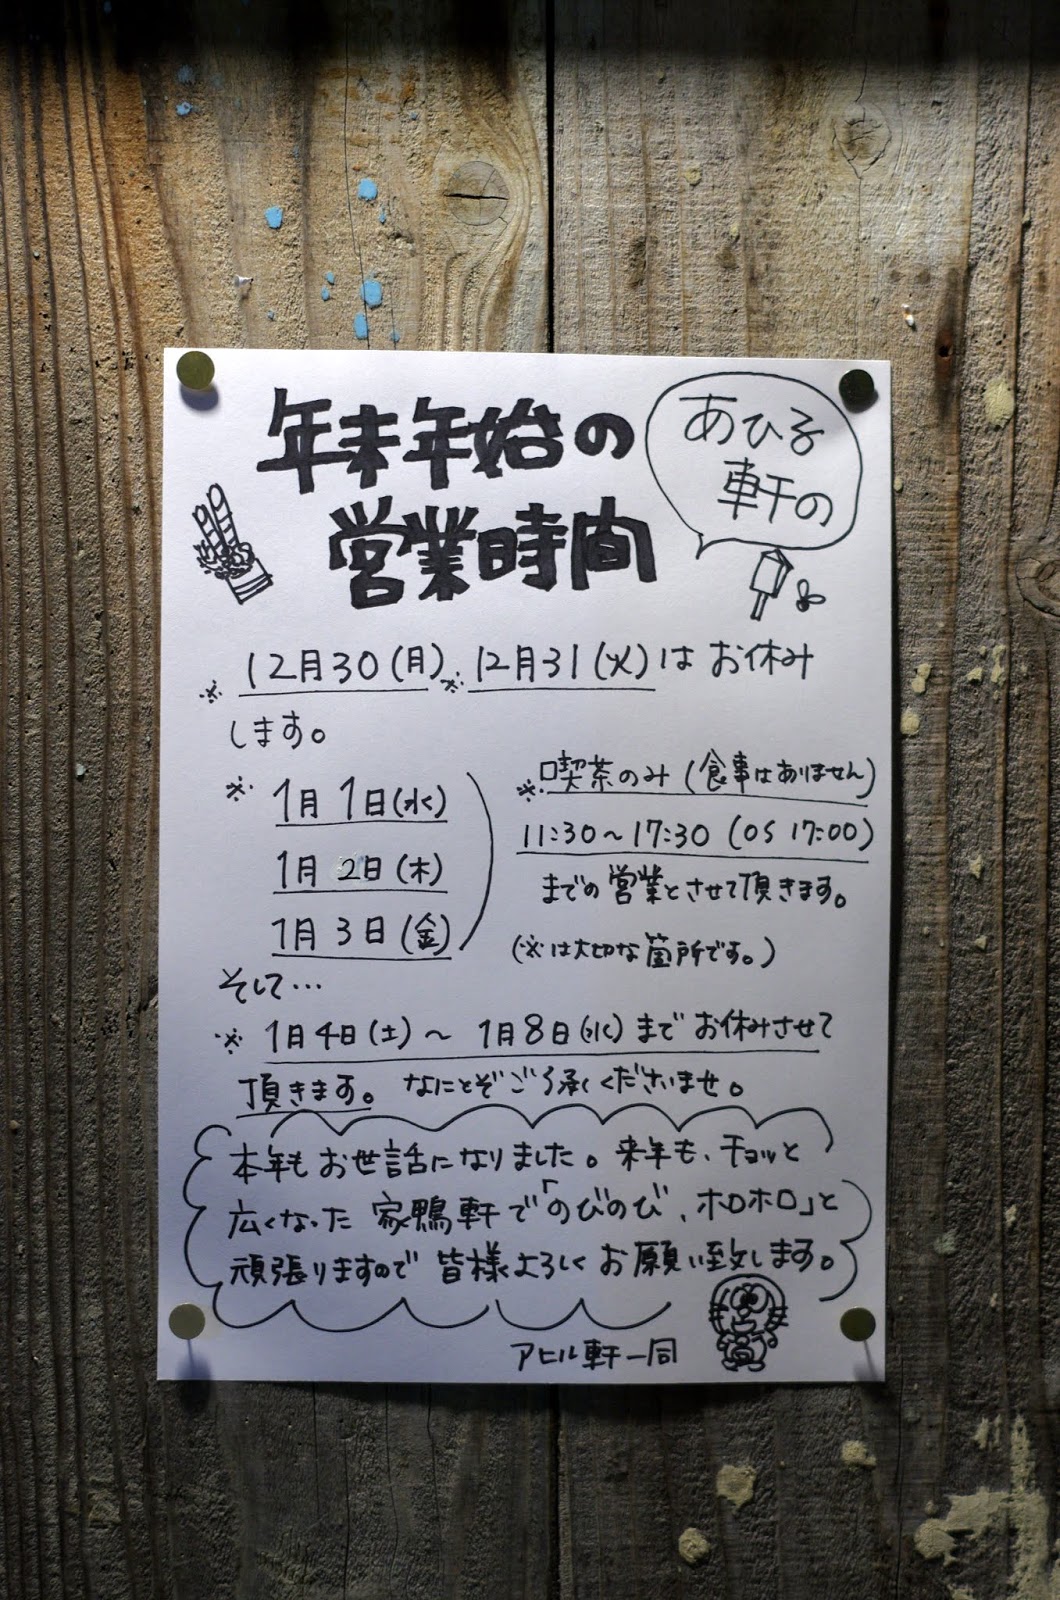 あひる
軒の
年末年始の
営業時間
※12月30(月)※12月31(火)はお休み
します。
※1月1日(水)
1月2日(木)
1月3日(金)
※喫茶のみ(食事はありません)
11:30〜17:30(OS 17:00)
までの営業とさせて頂きます。
(※は大切な箇所です。)
そして…
※1月4日(土)〜1月8日(水)までお休みさせて
頂きます。なにとぞご了承くださいませ。
本年もお世話になりました。来年も、チョッと
広くなった家鴨軒で「のびのび、ホロホロ」と
頑張りますので皆様よろしくお願い致します。
アヒル軒一同